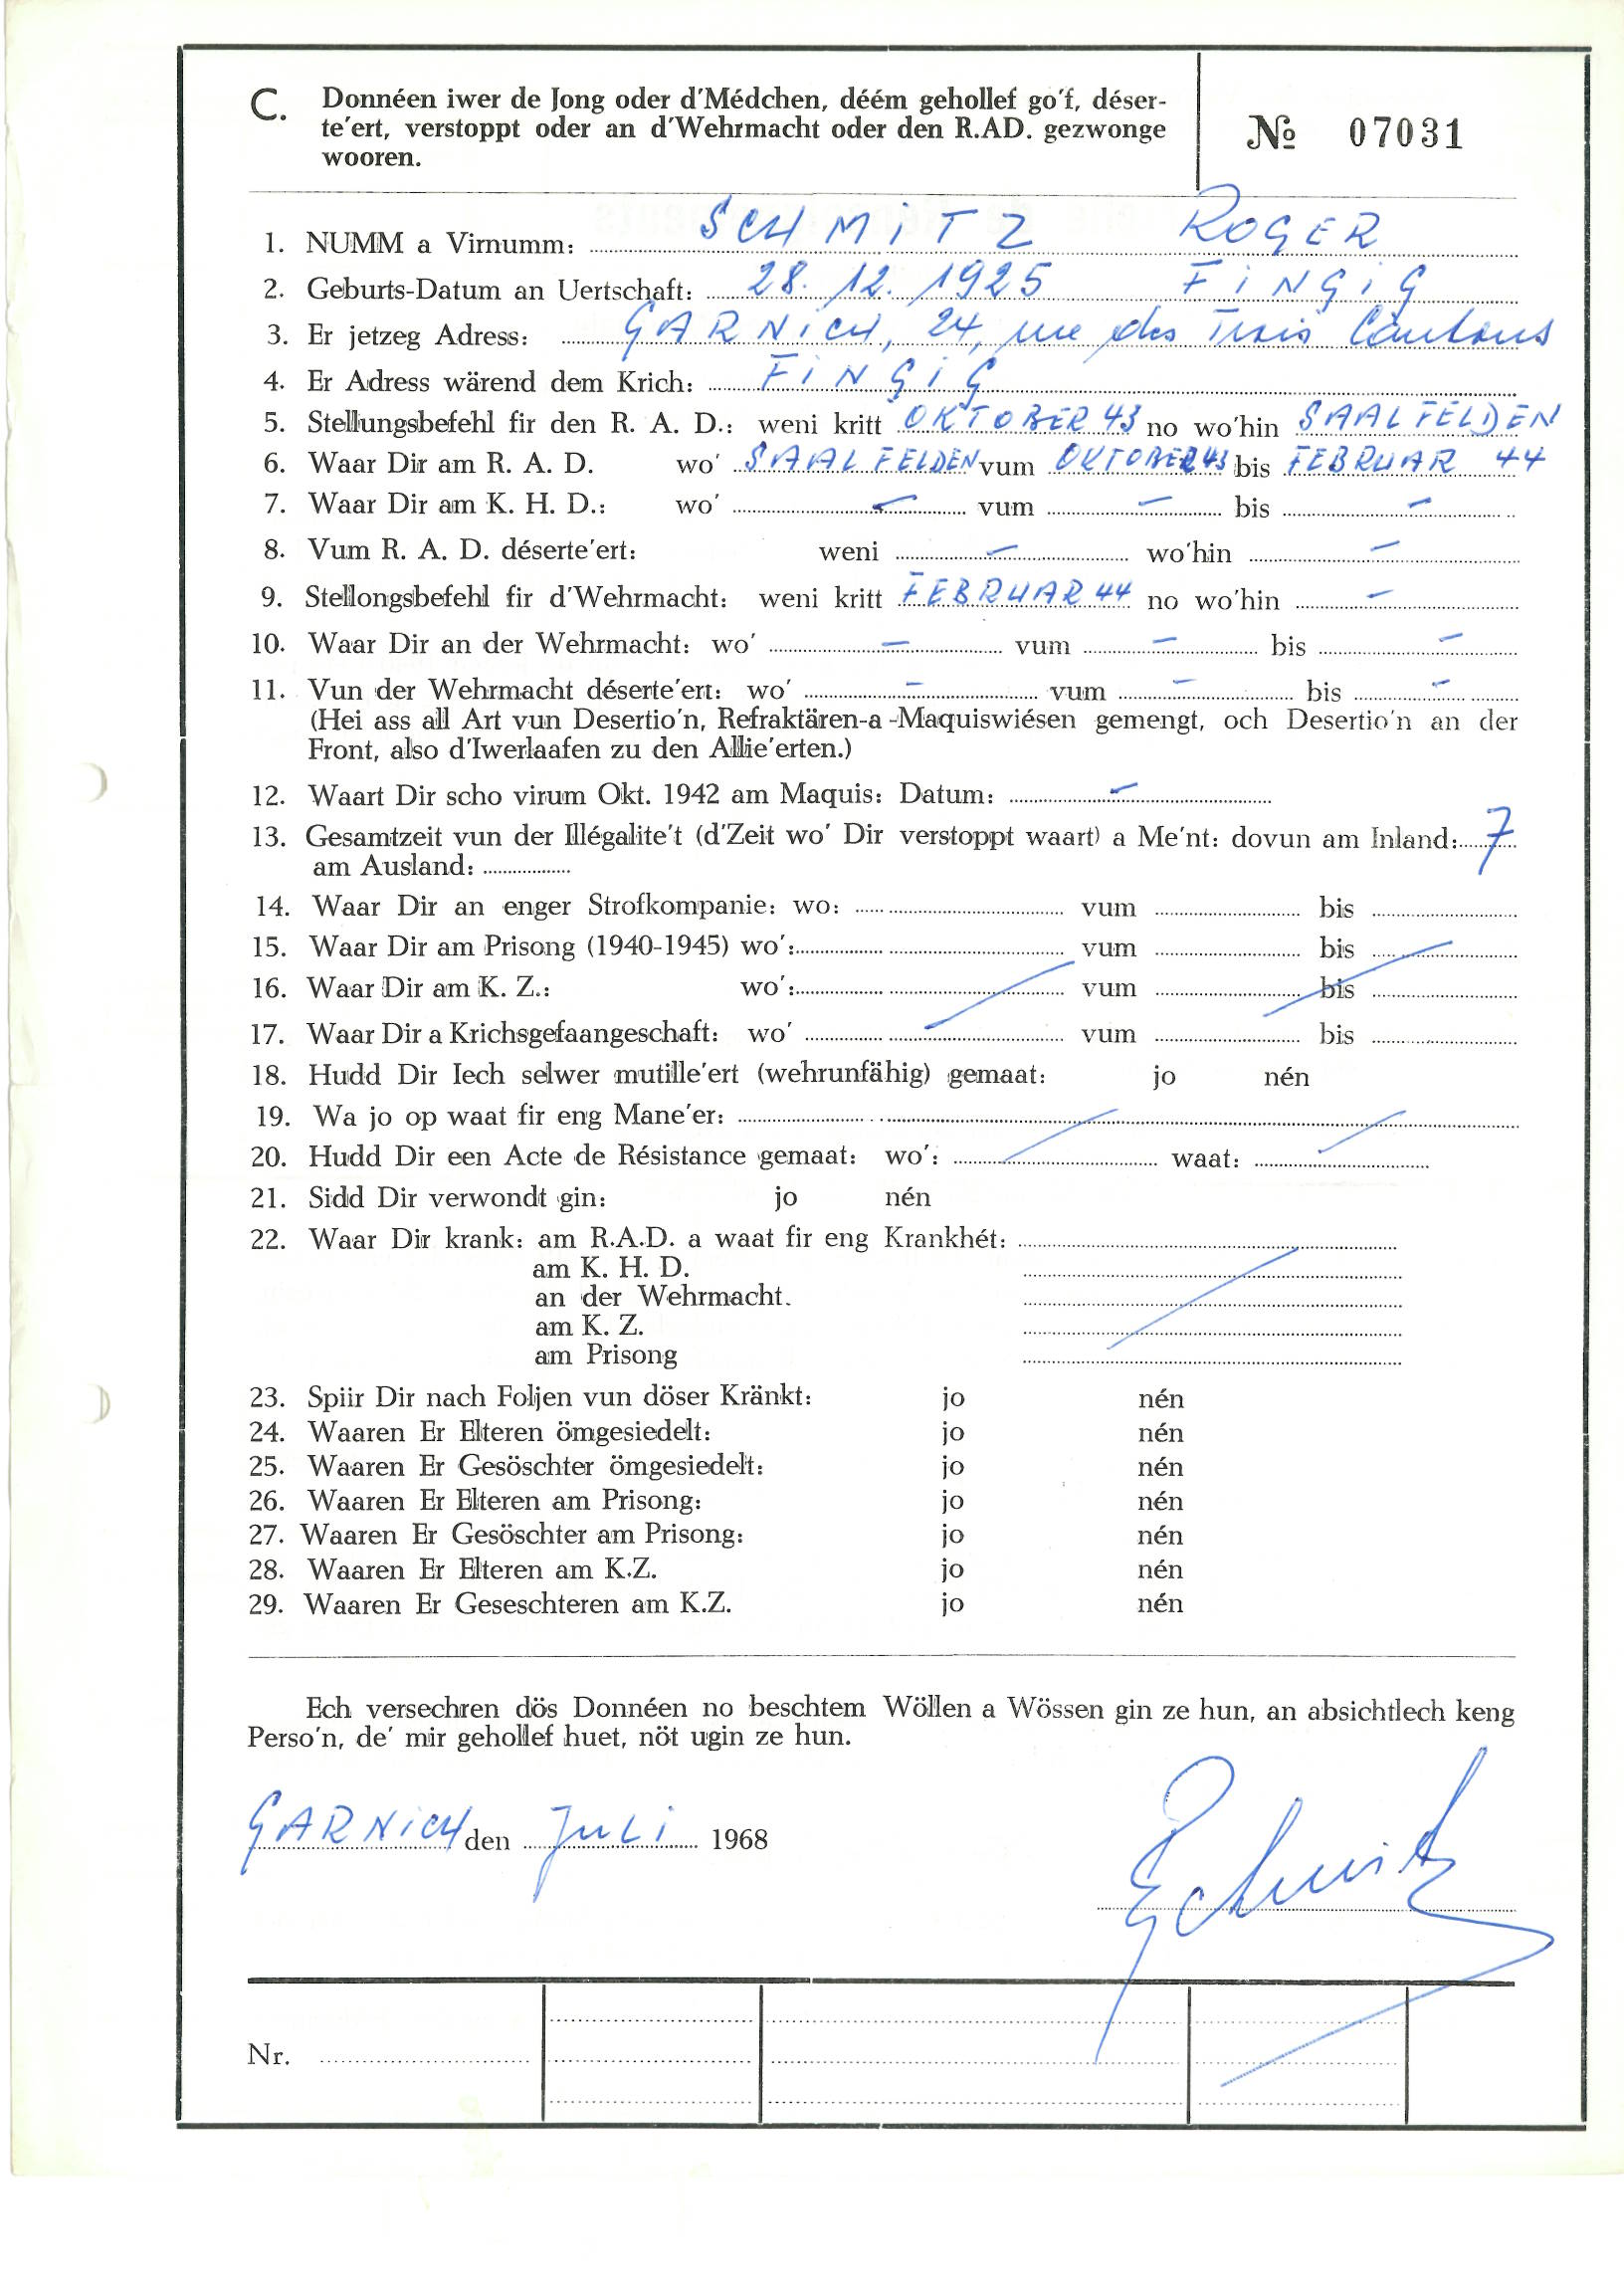 C. Donnéen iwer de Jong oder d'Médchen, déém gehollef go'f, déser-
te'ert, verstoppt oder an d'Wehrmacht oder den R.AD. gezwonge
wooren.
№ 07031
1. NUMM a Virnumm: SCHMITZ ROGER
2. Geburts-Datum an Uertschaft: 28. 12. 1925 FINGIG
3. Er jetzeg Adress: GARNICH, 24, rue des Trois Cantons
4. Er Adress wärend dem Krich: FINGIG
5. Stellungsbefehl fir den R. A. D.: weni kritt OKTOBER 43 no wo'hin SAALFELDEN
6. Waar Dir am R. A. D. wo' SAALFELDEN vum OKTOBER 43 bis FEBRUAR 44
7. Waar Dir am K. H. D.: wo' – vum – bis –
8. Vum R. A. D. déserte'ert: weni – wo'hin –
9. Stellongsbefehl fir d'Wehrmacht: weni kritt FEBRUAR 44 no wo'hin –
10. Waar Dir an der Wehrmacht: wo' – vum – bis –
11. Vun der Wehrmacht déserte'ert: wo' – vum – bis –
(Hei ass all Art vun Desertio'n, Refraktären-a-Maquiswiésen gemengt, och Desertio'n an der
Front, also d'Iwerlaafen zu den Allie'erten.)
12. Waart Dir scho virum Okt. 1942 am Maquis: Datum: –
13. Gesamtzeit vun der Illégalite't (d'Zeit wo' Dir verstoppt waart) a Me'nt: dovun am Inland: 7
am Ausland:
14. Waar Dir an enger Strofkompanie: wo: vum bis
15. Waar Dir am Prisong (1940-1945) wo': vum bis
16. Waar Dir am K. Z.: wo': vum bis
17. Waar Dir a Krichsgefaangeschaft: wo' vum bis
18. Hudd Dir Iech selwer mutille'ert (wehrunfähig) gemaat: jo nén
19. Wa jo op waat fir eng Mane'er:
20. Hudd Dir een Acte de Résistance gemaat: wo': waat:
21. Sidd Dir verwondt gin: jo nén
22. Waar Dir krank: am R.A.D. a waat fir eng Krankhét:
am K. H. D.
an der Wehrmacht.
am K. Z.
am Prisong
23. Spiir Dir nach Foljen vun döser Kränkt: jo nén
24. Waaren Er Elteren ömgesiedelt: jo nén
25. Waaren Er Gesöschter ömgesiedelt: jo nén
26. Waaren Er Elteren am Prisong: jo nén
27. Waaren Er Gesöschter am Prisong: jo nén
28. Waaren Er Elteren am K.Z. jo nén
29. Waaren Er Geseschteren am K.Z. jo nén
Ech versechren dös Donnéen no beschtem Wöllen a Wössen gin ze hun, an absichtlech keng
Perso'n, de' mir gehollef huet, nöt ugin ze hun.
GARNICH den JULI 1968
Schmitz
Nr.